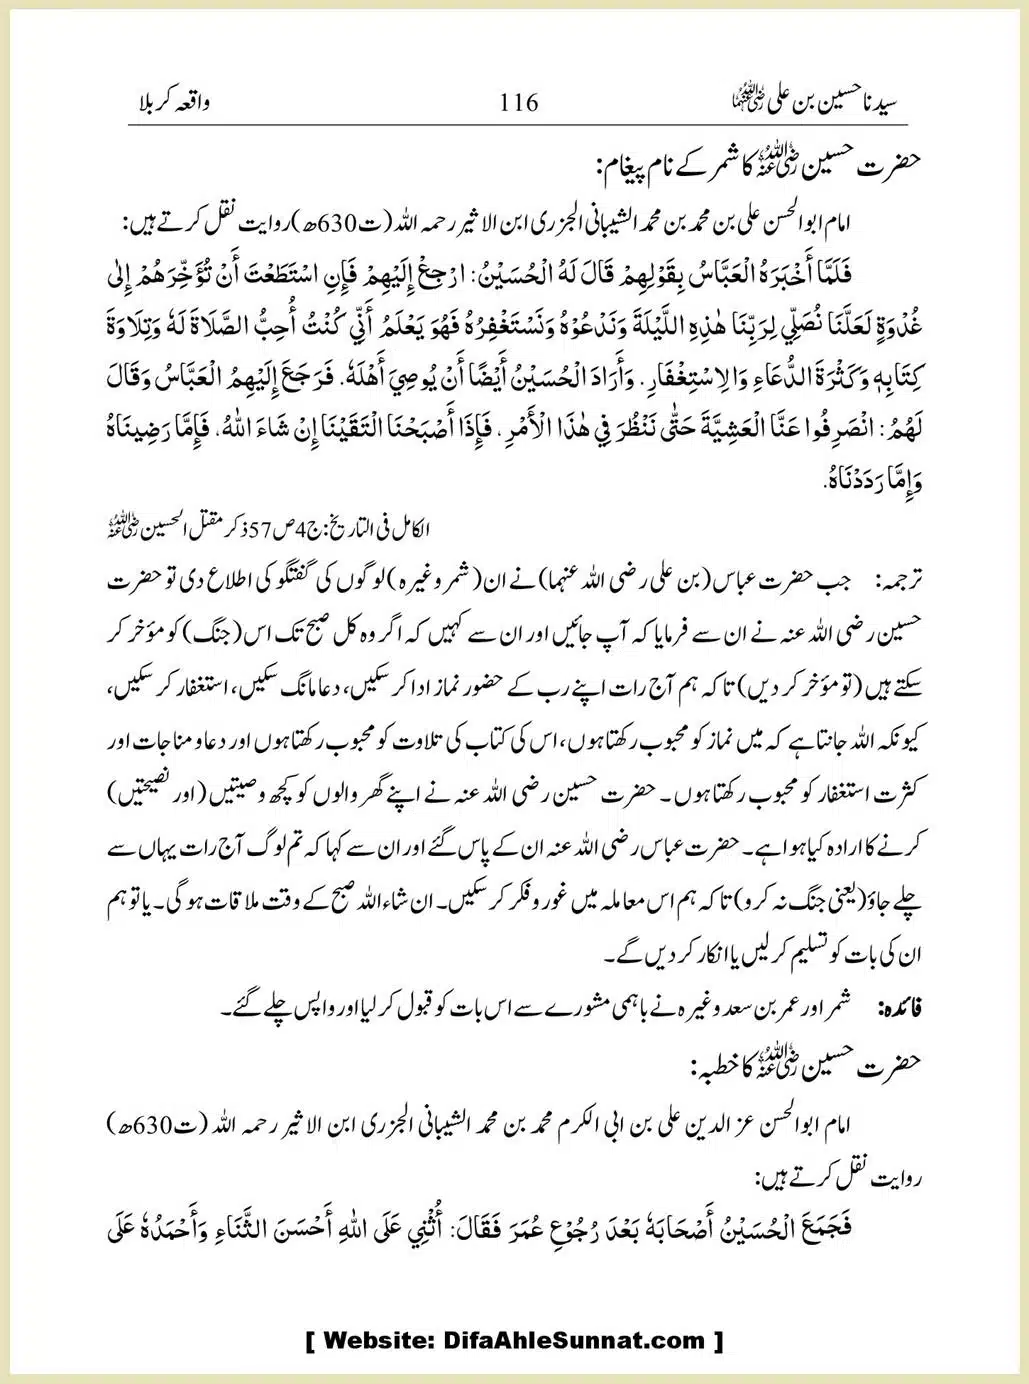 سیدنا حسین بن علی رضی اللہ عنہما 116 واقعہ کربلا
حضرت حسین رضی اللہ عنہ کا شمر کے نام پیغام:
امام ابو الحسن علی بن محمد بن محمد الشیبانی الجزری ابن الاثیر رحمہ اللہ (ت630ھ) روایت نقل کرتے ہیں:
فَلَمَّا أَخْبَرَهُ الْعَبَّاسُ بِقَوْلِهِمْ قَالَ لَهُ الْحُسَيْنُ: ارْجِعْ إِلَيْهِمْ فَإِنِ اسْتَطَعْتَ أَنْ تُؤَخِّرَهُمْ إِلٰى
غُدْوَةٍ لَعَلَّنَا نُصَلِّي لِرَبِّنَا هٰذِهِ اللَّيْلَةَ وَنَدْعُوْهُ وَنَسْتَغْفِرُهُ فَهُوَ يَعْلَمُ أَنِّي كُنْتُ أُحِبُّ الصَّلَاةَ لَهٗ وَتِلَاوَةَ
كِتَابِهٖ وَكَثْرَةَ الدُّعَاءِ وَالِاسْتِغْفَارِ. وَأَرَادَ الْحُسَيْنُ أَيْضًا أَنْ يُوصِيَ أَهْلَهٗ. فَرَجَعَ إِلَيْهِمُ الْعَبَّاسُ وَقَالَ
لَهُمُ: انْصَرِفُوا عَنَّا الْعَشِيَّةَ حَتّٰى نَنْظُرَ فِي هٰذَا الْأَمْرِ، فَإِذَا أَصْبَحْنَا الْتَقَيْنَا إِنْ شَاءَ اللهُ، فَإِمَّا رَضِينَاهُ
وَإِمَّا رَدَدْنَاهُ.
الکامل فی التاریخ: ج4 ص57 ذکر مقتل الحسین رضی اللہ عنہ
ترجمہ: جب حضرت عباس (بن علی رضی اللہ عنہما) نے ان (شمر وغیرہ) لوگوں کی گفتگو کی اطلاع دی تو حضرت
حسین رضی اللہ عنہ نے ان سے فرمایا کہ آپ جائیں اور ان سے کہیں کہ اگر وہ کل صبح تک اس (جنگ) کو مؤخر کر
سکتے ہیں (تو مؤخر کر دیں) تاکہ ہم آج رات اپنے رب کے حضور نماز ادا کر سکیں، دعا مانگ سکیں، استغفار کر سکیں،
کیونکہ اللہ جانتا ہے کہ میں نماز کو محبوب رکھتا ہوں، اس کی کتاب کی تلاوت کو محبوب رکھتا ہوں اور دعا و مناجات اور
کثرت استغفار کو محبوب رکھتا ہوں۔ حضرت حسین رضی اللہ عنہ نے اپنے گھر والوں کو کچھ وصیتیں (اور نصیحتیں)
کرنے کا ارادہ کیا ہوا ہے۔ حضرت عباس رضی اللہ عنہ ان کے پاس گئے اور ان سے کہا کہ تم لوگ آج رات یہاں سے
چلے جاؤ (یعنی جنگ نہ کرو) تاکہ ہم اس معاملہ میں غور و فکر کر سکیں۔ ان شاء اللہ صبح کے وقت ملاقات ہو گی۔ یا تو ہم
ان کی بات کو تسلیم کر لیں یا انکار کر دیں گے۔
فائدہ: شمر اور عمر بن سعد وغیرہ نے باہمی مشورے سے اس بات کو قبول کر لیا اور واپس چلے گئے۔
حضرت حسین رضی اللہ عنہ کا خطبہ:
امام ابو الحسن عز الدین علی بن ابی الکرم محمد بن محمد الشیبانی الجزری ابن الاثیر رحمہ اللہ (ت630ھ)
روایت نقل کرتے ہیں:
فَجَمَعَ الْحُسَيْنُ أَصْحَابَهٗ بَعْدَ رُجُوْعِ عُمَرَ فَقَالَ: أُثْنِي عَلَى اللهِ أَحْسَنَ الثَّنَاءِ وَأَحْمَدُهٗ عَلَى
[ Website: DifaAhleSunnat.com ]